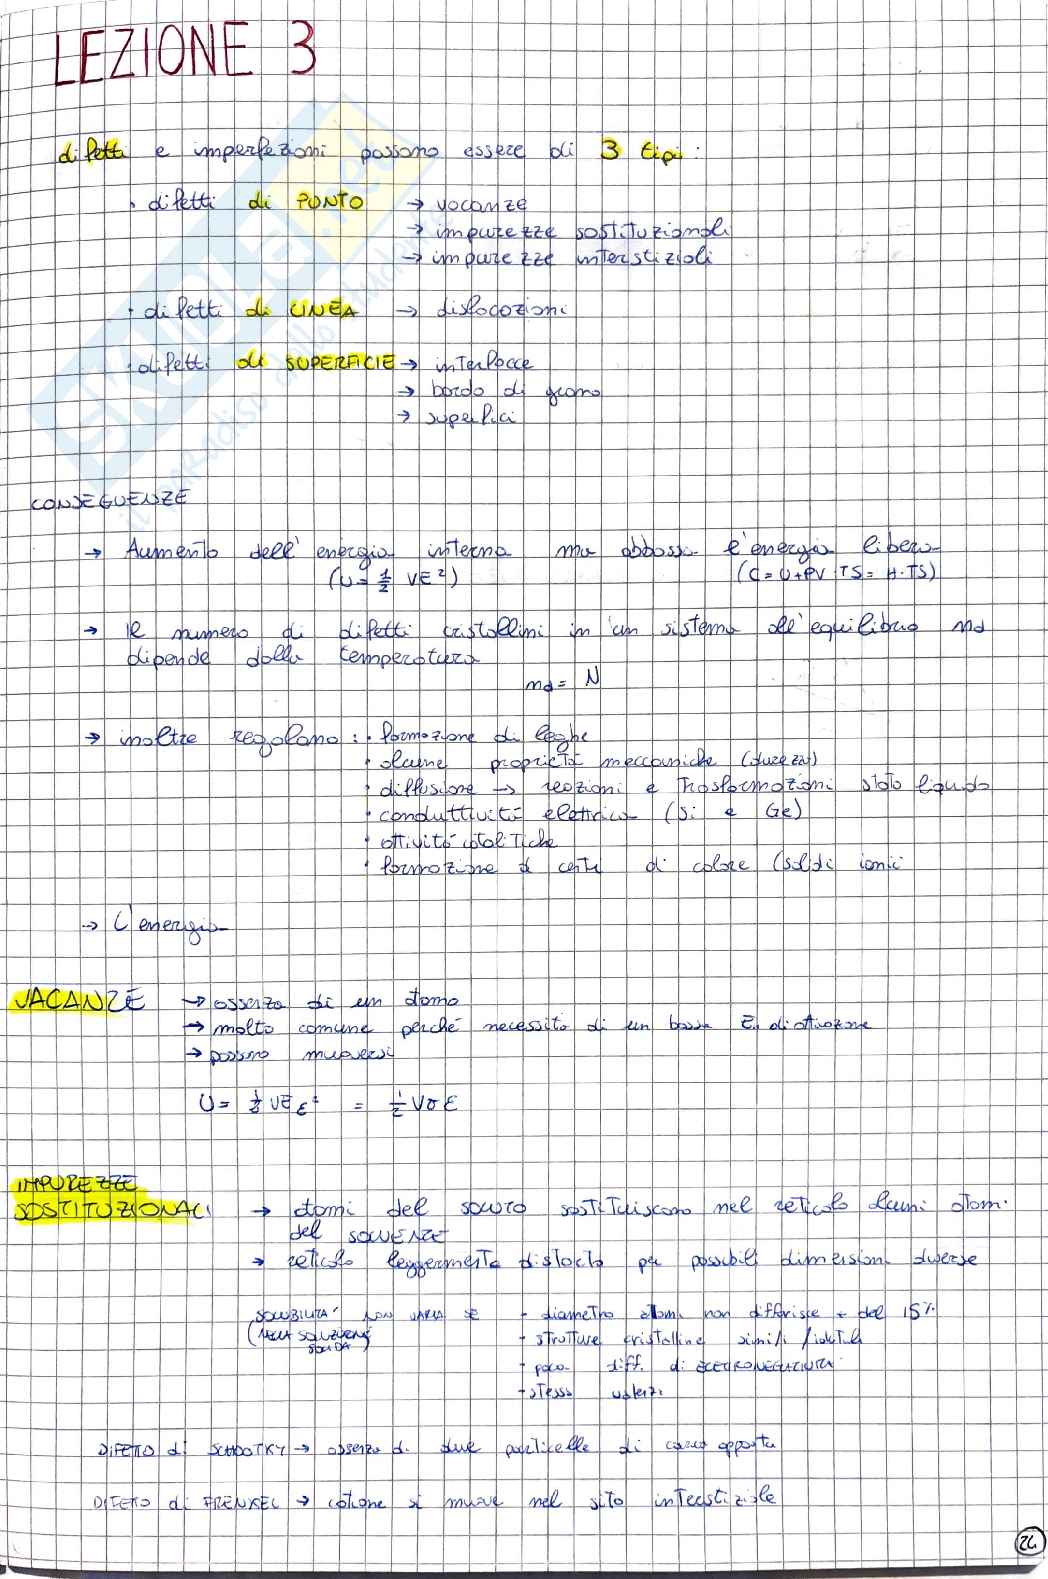 LEZIONE 3
difetti e imperfezioni possono essere di 3 tipi:
· difetti di PUNTO → vacanze
→ impurezze sostituzionali
→ impurezze interstiziali
· difetti di LINEA → dislocazioni
· difetti di SUPERFICIE → interfacce
→ bordo di grano
→ superfici
SKUOLA.net
il paradiso dello studente
CONSEGUENZE
→ Aumento dell'energia interna ma abbassa l'energia libera
(U = 1/2 VE²) (G = U+PV-TS = H-TS)
→ Il numero di difetti cristallini in un sistema all'equilibrio nd
dipende dalla temperatura
nd = N
→ inoltre regolano: · formazione di leghe
· alcune proprietà meccaniche (durezza)
· diffusione → reazioni e trasformazioni stato liquido
· conduttività elettrica (Si e Ge)
· attività catalitiche
· formazione di centri di colore (solidi ionici
→ L'energia
VACANZE → assenza di un atomo
→ molto comune perché necessita di un bassa E. di attivazione
→ possono muoversi
U = 1/2 VEε² = 1/2 Vσε
IMPUREZZE
SOSTITUZIONALI → atomi del soluto sostituiscono nel reticolo alcuni atomi
del SOLVENTE
→ reticolo leggermente distorto per possibili dimensioni diverse
SOLUBILITA' NON VARIA SE - diametro atomi non differisce + del 15%
(NELLA SOLUZIONE SOLIDA) - strutture cristalline simili/identiche
- poca diff. di ELETTRONEGATIVITA'
- stessa valenza
DIFETTO di SCHOOTKY → assenza di due particelle di carica opposta
DIFETTO di FRENKEL → catione si muove nel sito interstiziale